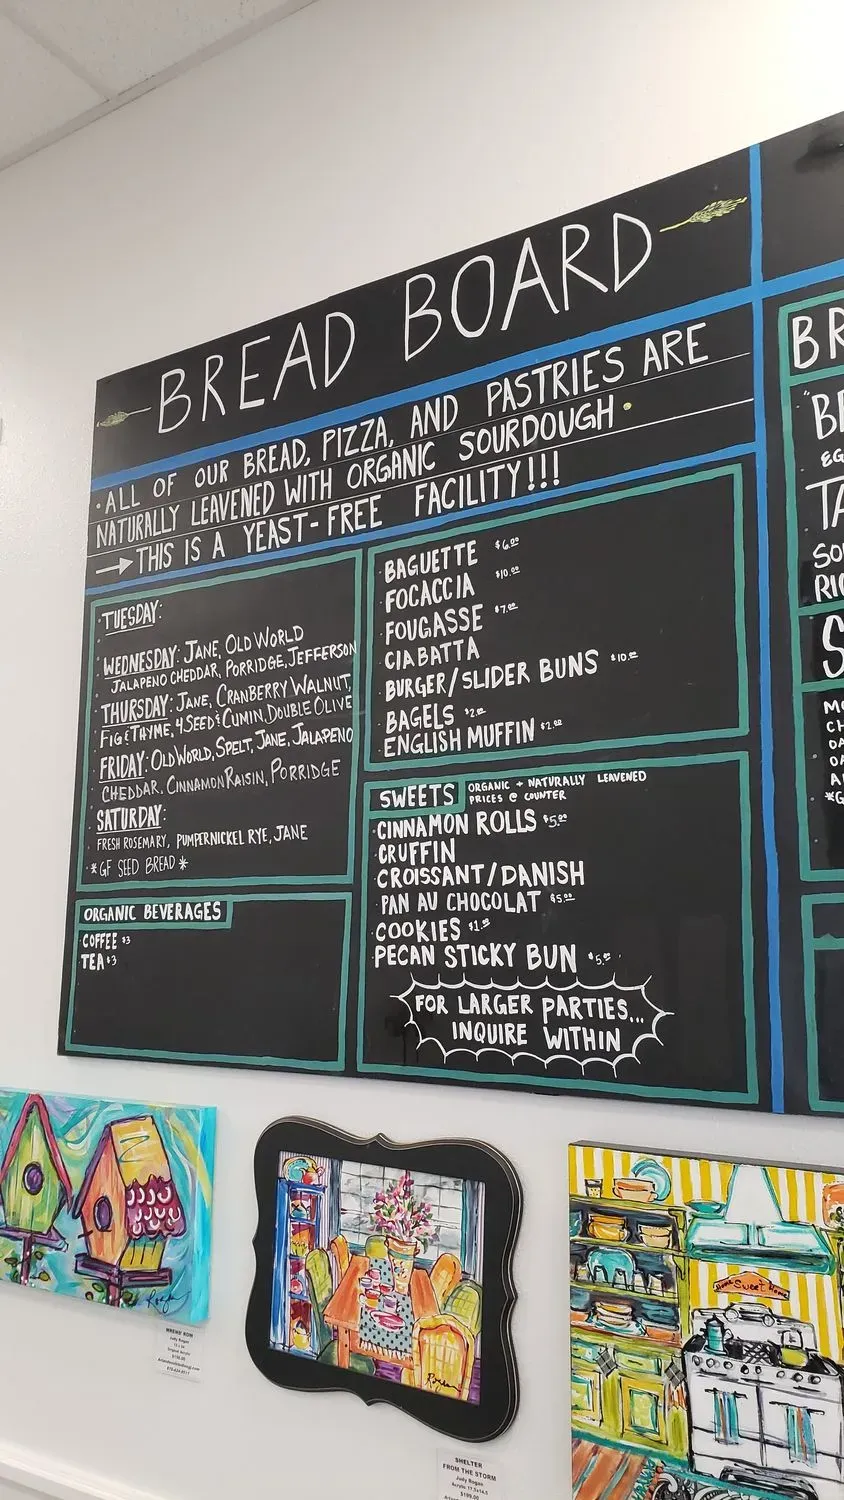 BREAD BOARD
·ALL OF OUR BREAD, PIZZA, AND PASTRIES ARE
NATURALLY LEAVENED WITH ORGANIC SOURDOUGH·
THIS IS A YEAST-FREE FACILITY!!!
TUESDAY:
WEDNESDAY: JANE, OLD WORLD
JALAPENO CHEDDAR, PORRIDGE, JEFFERSON
THURSDAY: JANE, CRANBERRY WALNUT,
FIG & THYME, 4 SEED & CUMIN, DOUBLE OLIVE
FRIDAY: OLD WORLD, SPELT, JANE, JALAPENO
CHEDDAR, CINNAMON RAISIN, PORRIDGE
SATURDAY:
FRESH ROSEMARY, PUMPERNICKEL RYE, JANE
*GF SEED BREAD*
ORGANIC BEVERAGES
COFFEE $3
TEA $3
BAGUETTE $6.00
FOCACCIA $10.00
FOUGASSE $7.00
CIABATTA
BURGER/SLIDER BUNS $10.00
BAGELS $2.00
ENGLISH MUFFIN $2.00
SWEETS ORGANIC + NATURALLY LEAVENED
PRICES @ COUNTER
CINNAMON ROLLS $5.00
CRUFFIN
CROISSANT/DANISH
PAN AU CHOCOLAT $5.00
COOKIES
PECAN STICKY BUN
FOR LARGER PARTIES...
INQUIRE WITHIN
BR
EG
SO
RI
S
Home Sweet Home
Judy Bogan
SHELTER
FROM THE STORM
Judy Bogan
Acrylic 17.5x14.5
$199.00